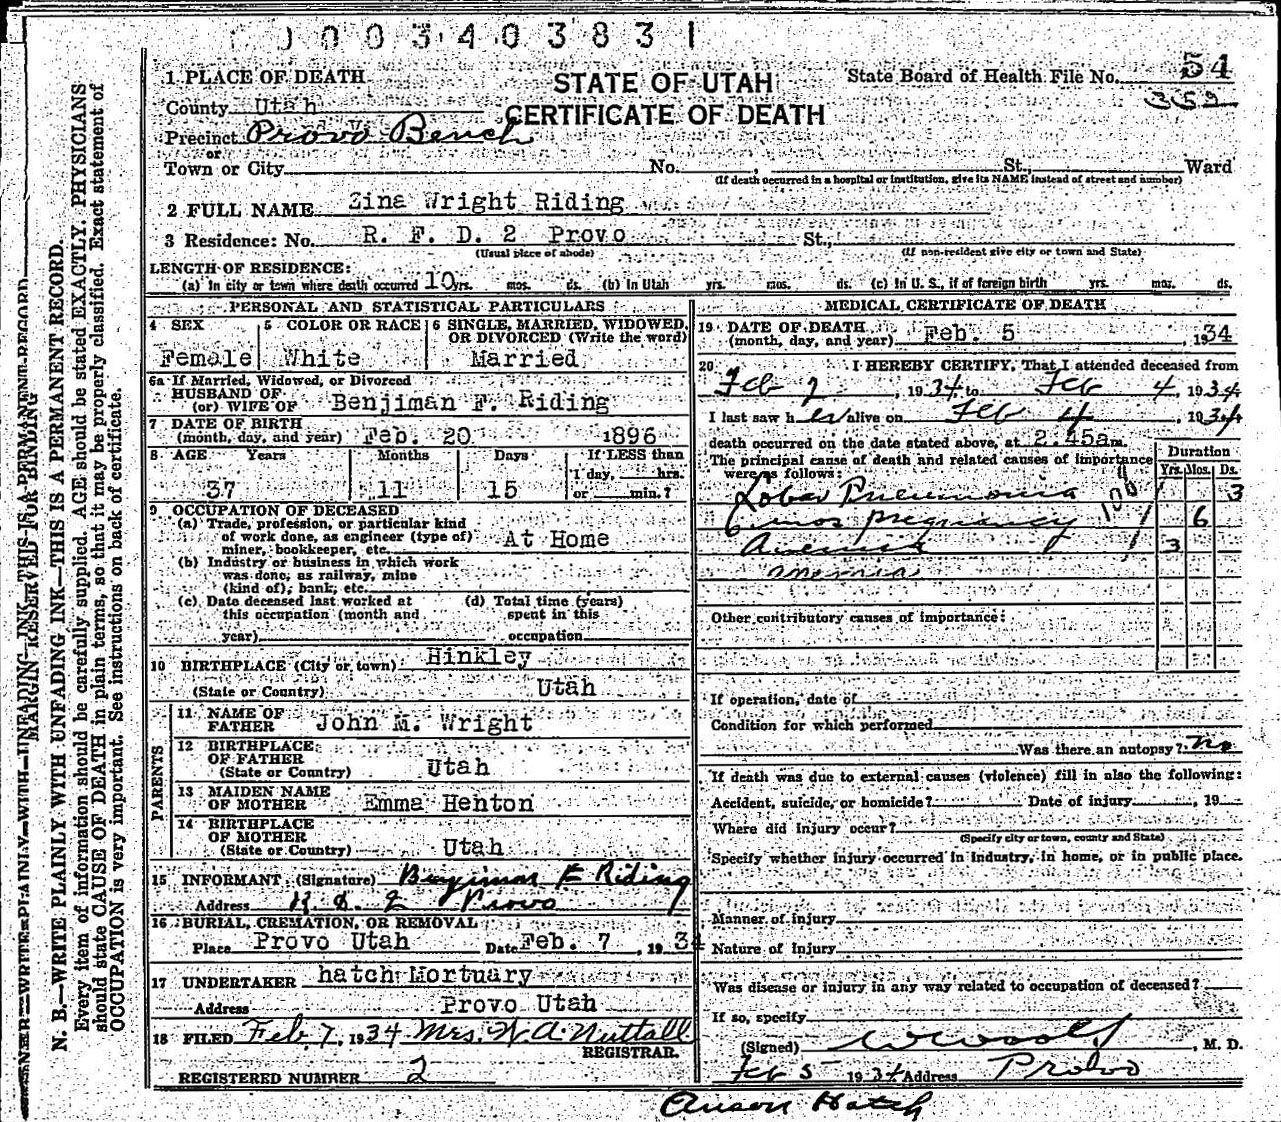 0003403831
STATE OF UTAH
CERTIFICATE OF DEATH
State Board of Health File No. 54
352
1 PLACE OF DEATH
County Utah
Precinct Provo Bench
or
Town or City No. , St., Ward
(If death occurred in a hospital or institution, give its NAME instead of street and number)
2 FULL NAME Zina Wright Riding
3 Residence: No. R. F. D. 2 Provo St.,
(Usual place of abode) (If non-resident give city or town and State)
LENGTH OF RESIDENCE:
(a) In city or town where death occurred 10 yrs. mos. ds. (b) In Utah yrs. mos. ds. (c) In U. S., if of foreign birth yrs. mos. ds.
PERSONAL AND STATISTICAL PARTICULARS
4 SEX
Female
5 COLOR OR RACE
White
6 SINGLE, MARRIED, WIDOWED,
OR DIVORCED (Write the word)
Married
6a If Married, Widowed, or Divorced
HUSBAND OF
(or) WIFE OF Benjiman F. Riding
7 DATE OF BIRTH
(month, day, and year) Feb. 20 1896
8 AGE Years Months Days If LESS than
1 day, hrs.
37 11 15 or min.?
9 OCCUPATION OF DECEASED
(a) Trade, profession, or particular kind
of work done, as engineer (type of)
miner, bookkeeper, etc. At Home
(b) Industry or business in which work
was done, as railway, mine
(kind of), bank, etc.
(c) Date deceased last worked at
this occupation (month and
year)
(d) Total time (years)
spent in this
occupation
10 BIRTHPLACE (City or town) Hinkley
(State or Country) Utah
PARENTS
11 NAME OF
FATHER John M. Wright
12 BIRTHPLACE
OF FATHER
(State or Country) Utah
13 MAIDEN NAME
OF MOTHER Emma Henton
14 BIRTHPLACE
OF MOTHER
(State or Country) Utah
15 INFORMANT (Signature) Benjiman F Riding
Address R. D. 2 Provo
16 BURIAL, CREMATION, OR REMOVAL
Place Provo Utah Date Feb. 7, 1934
17 UNDERTAKER hatch Mortuary
Address Provo Utah
18 FILED Feb 7, 1934 Mrs. W. A. Nuttall
REGISTRAR.
REGISTERED NUMBER 2
MEDICAL CERTIFICATE OF DEATH
19 DATE OF DEATH
(month, day, and year) Feb. 5, 1934
20 I HEREBY CERTIFY, That I attended deceased from
Feb 2, 1934 to Feb 4, 1934
I last saw her alive on Feb 4, 1934
death occurred on the date stated above, at 2.45am.
The principal cause of death and related causes of importance
were as follows:
Duration
Yrs. Mos. Ds.
Lobar Pneumonia 3
6 mos pregnancy 6
Anemia 3
108
Other contributory causes of importance:
If operation, date of
Condition for which performed
Was there an autopsy? no
If death was due to external causes (violence) fill in also the following:
Accident, suicide, or homicide? Date of injury , 19
Where did injury occur?
(Specify city or town, county and State)
Specify whether injury occurred in industry, in home, or in public place.
Manner of injury
Nature of Injury
Was disease or injury in any way related to occupation of deceased?
If so, specify
(Signed) , M. D.
Feb 5 1934 Address Provo
Anson Hatch
MARGIN RESERVED FOR BINDING
N. B.—WRITE PLAINLY WITH UNFADING INK—THIS IS A PERMANENT RECORD.
Every item of information should be carefully supplied. AGE should be stated EXACTLY. PHYSICIANS
should state CAUSE OF DEATH in plain terms, so that it may be properly classified. Exact statement of
OCCUPATION is very important. See instructions on back of certificate.